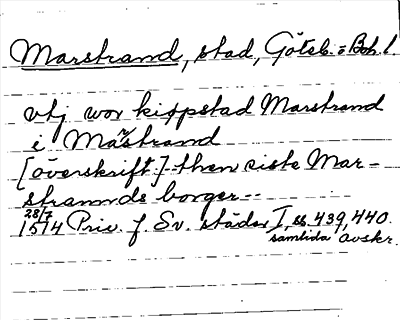 Marstrand, stad, Göteb. o Boh. l.
vtj wor kiøpstad Marstrand
i Mastrand
[överskrift:] then siste Mar-
strannds borger--
28/7
1514 Priv. f. Sv. städer I, ss. 439, 440.
samtida avskr.